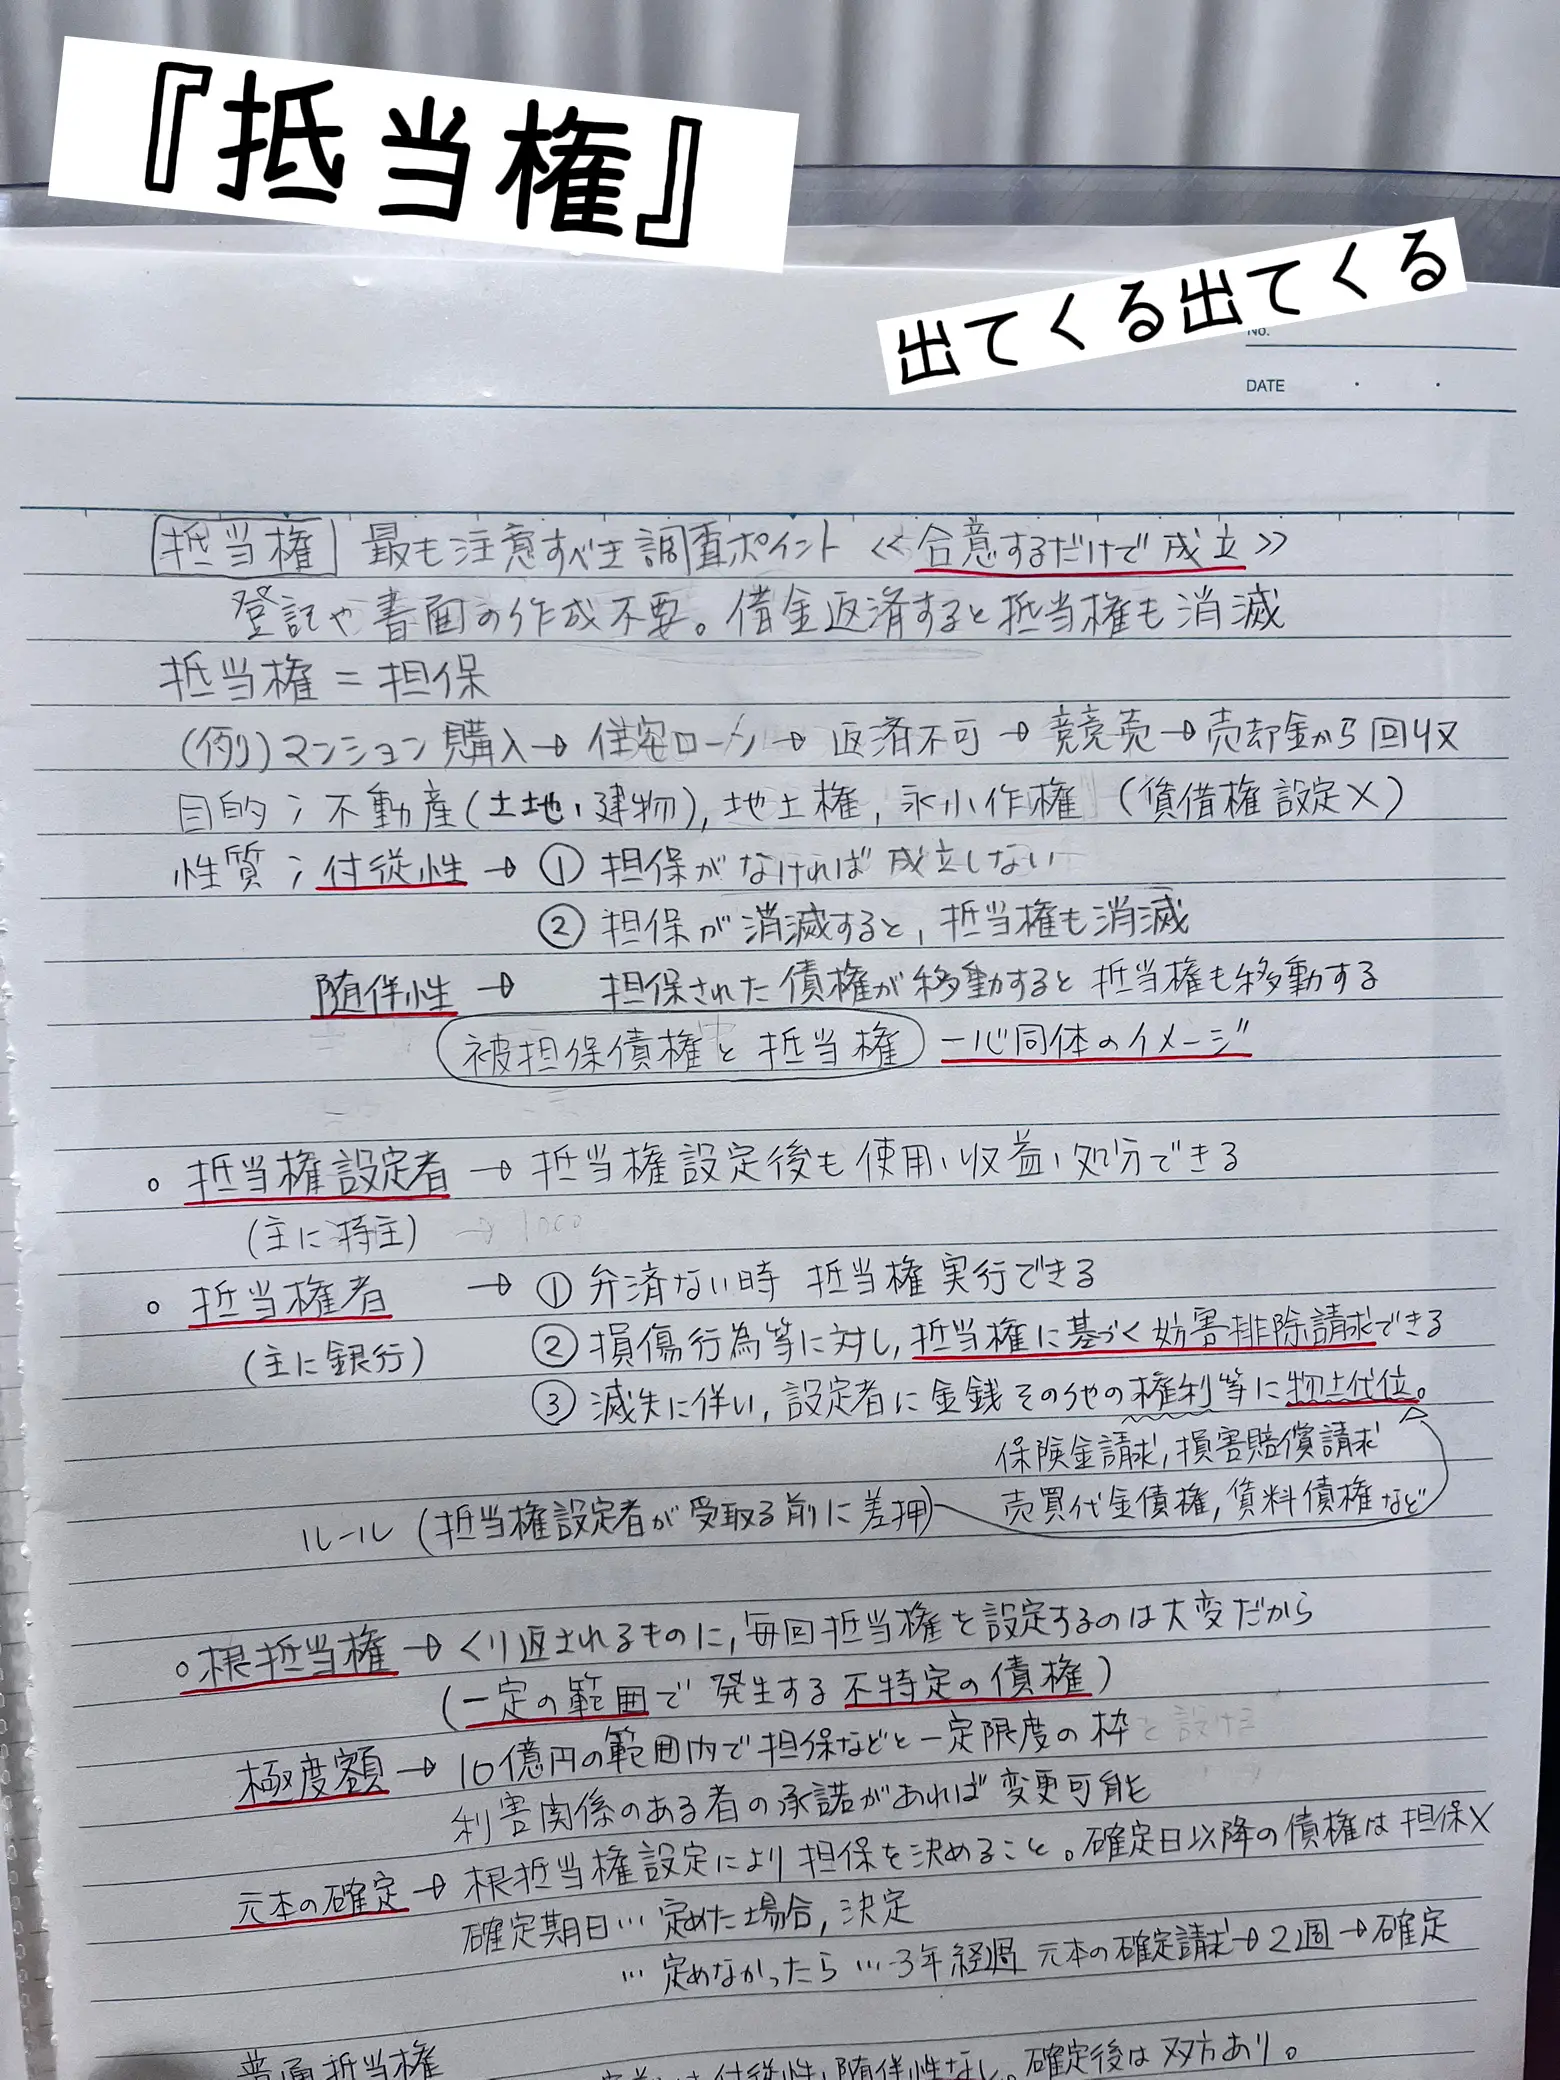 『抵当権』
出てくる出てくる
No.
DATE
抵当権 最も注意すべき調査ポイント ≪合意するだけで成立≫
登記や書面の作成不要。借金返済すると抵当権も消滅
抵当権=担保
(例)マンション購入→住宅ローン→返済不可→競売→売却金から回収
目的;不動産(土地、建物),地土権,永小作権 (賃借権設定×)
性質;付従性→①担保がなければ成立しない
②担保が消滅すると,抵当権も消滅
随伴性→ 担保された債権が移動すると抵当権も移動する
被担保債権と抵当権 一心同体のイメージ
○抵当権設定者→抵当権設定後も使用、収益、処分できる
(主に持主)
○抵当権者 →①弁済ない時 抵当権実行できる
(主に銀行) ②損傷行為等に対し,抵当権に基づく妨害排除請求できる
③滅失に伴い,設定者に金銭その他の権利等に物上代位。
保険金請求,損害賠償請求
ルール(抵当権設定者が受取る前に差押) 売買代金債権,賃料債権など
○根抵当権→くり返されるものに,毎回抵当権を設定するのは大変だから
(一定の範囲で発生する不特定の債権)
極度額→10億円の範囲内で担保などと一定限度の枠と設ける
利害関係のある者の承諾があれば変更可能
元本の確定→根抵当権設定により担保を決めること。確定日以降の債権は担保×
確定期日…定めた場合,決定
…定めなかったら…3年経過 元本の確定請求→2週→確定
普通抵当権
付従性、随伴性なし。確定後は双方あり。